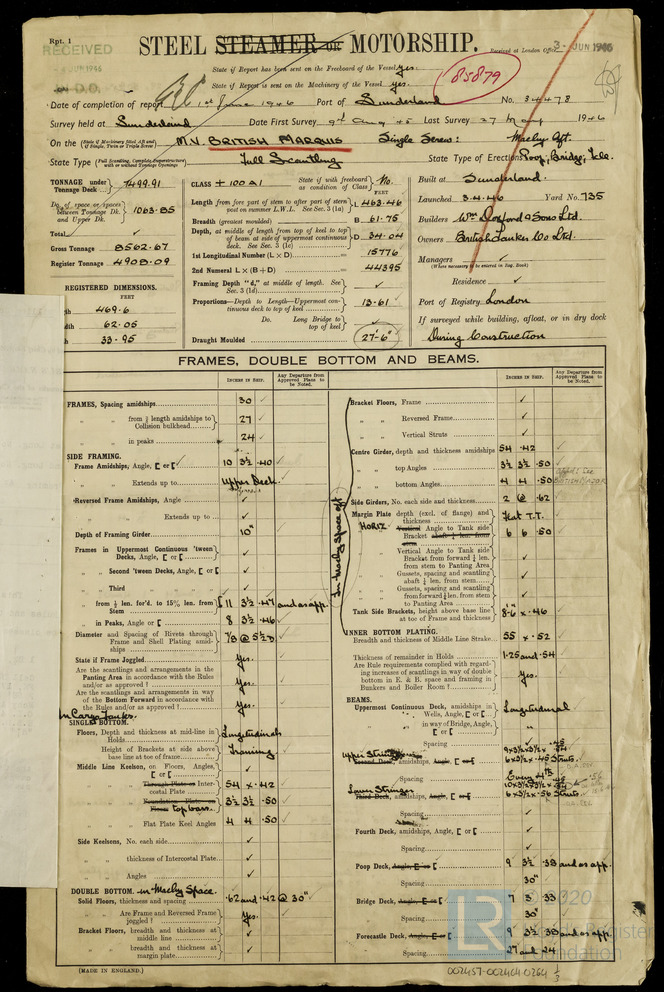 Rpt. 1
RECEIVED
JUN 1946
D.O.
STEEL STEAMER OR MOTORSHIP.
Received at London Office 3 - JUN 1946
State if Report has been sent on the Freeboard of the Vessel yes.
State if Report is sent on the Machinery of the Vessel yes.
85879
Date of completion of report 1st June 1946 Port of Sunderland No. 34478
Survey held at Sunderland Date First Survey 9th Aug '45 Last Survey 27 May 1946
On the (State if Machinery fitted Aft and if Single, Twin or Triple Screw) M.V. BRITISH MARQUIS Single Screw: Machy Aft.
State Type (Full Scantling, Complete Superstructure with or without Tonnage Openings) Full Scantling State Type of Erections Poop, Bridge, Fcle.
TONNAGE under Tonnage Deck 7499.91
Do. of space or spaces between Tonnage Dk. and Upper Dk. 1063.85
Total
Gross Tonnage 8562.67
Register Tonnage 4908.09
REGISTERED DIMENSIONS.
FEET
469.6
62.05
33.95
CLASS + 100 A1 State if with freeboard as condition of Class No.
FEET
Length from fore part of stem to after part of stern post on summer L.W.L. See Sec. 3 (1a) L 463.46
Breadth (greatest moulded) B 61.75
Depth, at middle of length from top of keel to top of beam at side of uppermost continuous deck. See Sec. 3 (1c) D 34.04
1st Longitudinal Number (L x D) 15776
2nd Numeral L x (B + D) 44395
Framing Depth "d," at middle of length. See Sec. 3 (1d)
Proportions—Depth to Length—Uppermost continuous deck to top of keel 13.61
Do. Long Bridge to top of keel
Draught Moulded 27'-6"
Built at Sunderland.
Launched 3.4.46 Yard No. 735
Builders Wm Doxford & Sons Ltd.
Owners British Tanker Co Ltd.
Managers
(Where necessary to be entered in Reg. Book)
Residence
Port of Registry London
If surveyed while building, afloat, or in dry dock
During Construction
FRAMES, DOUBLE BOTTOM AND BEAMS.
INCHES IN SHIP. Any Departure from Approved Plans to be Noted.
FRAMES, Spacing amidships 30
" " from ⅕ length amidships to Collision bulkhead 27
" " in peaks 24
SIDE FRAMING.
Frame Amidships, Angle, [ or [ 10 3½ .40
" " Extends up to Upper Deck
Reversed Frame Amidships, Angle
" " Extends up to
Depth of Framing Girder 10"
Frames in Uppermost Continuous 'tween Decks, Angle, [ or [
" Second 'tween Decks, Angle, [ or [
" Third " " "
" from ⅕ len. for'd. to 15% len. from Stem 11 3½ .47 and as app.
" in Peaks, Angle or [ 8 3½ .46
Diameter and Spacing of Rivets through Frame and Shell Plating amidships 7/8 @ 5¼ D
State if Frame Joggled Yes.
Are the scantlings and arrangements in the Panting Area in accordance with the Rules and/or as approved? Yes.
Are the scantlings and arrangements in way of the Bottom Forward in accordance with the Rules and/or as approved? Yes.
In Cargo Tanks.
SINGLE BOTTOM.
Floors, Depth and thickness at mid-line in Holds Longitudinal
Height of Brackets at side above base at toe of frame Framing
Middle Line Keelson, on Floors, Angles, [ or [
" " Through Plate or Intercostal Plate 54 x .42
" " Foundation Plate on Floors top bars. 3½ 3½ .50
" " Flat Plate Keel Angles 4 4 .50
Side Keelsons, No. each side
" " thickness of Intercostal Plate
" " Angles
DOUBLE BOTTOM. in Machy Space.
Solid Floors, thickness and spacing .62 and .42 @ 30"
" " Are Frame and Reversed Frame joggled? Yes.
Bracket Floors, breadth and thickness at middle line
" " breadth and thickness at margin plate
(MADE IN ENGLAND.)
In Machy Space aft
INCHES IN SHIP. Any Departure from Approved Plans to be Noted.
Bracket Floors, Frame
" " Reversed Frame
" " Vertical Struts
Centre Girder, depth and thickness amidships 54 .42
" " top Angles 3½ 3½ .50
" " bottom Angles 4 4 .50
BRITISH MAJOR
Side Girders, No. each side and thickness 2 @ .62
Margin Plate depth (excl. of flange) and thickness flat T.T.
" " HORIZ Vertical Angle to Tank side Bracket abaft ¼ len. from stem 6 6 .50
" " Vertical Angle to Tank side Bracket from forward ¼ len. from stem to Panting Area
" " Gussets, spacing and scantling abaft ¼ len. from stem
" " Gussets, spacing and scantling from forward ¼ len. from stem to Panting Area
Tank Side Brackets, height above base line at toe of Frame and thickness 8-6" x .46
INNER BOTTOM PLATING.
Breadth and thickness of Middle Line Strake 55 x .52
Thickness of remainder in Holds 1.25 and .54
Are Rule requirements complied with regarding increases of scantlings in way of double bottom in E. & B. space and framing in Bunkers and Boiler Room? Yes.
BEAMS.
Uppermost Continuous Deck, amidships in Wells, Angle, [ or [ Longitudinal
" " in way of Bridge, Angle, [ or [
Spacing
Upper Stringer
Second Deck, amidships, Angle, [ or [ 9 x 3½ x 3½ x .45 .54
6 x 3½ x .45 Struts.
Spacing Every 4th
Lower Stringer
Third Deck, amidships, Angle, [ or [ 10 x 3½ x 3½ x
6 x 3½ x .56 Struts
Spacing
Fourth Deck, amidships, Angle, [ or [
Spacing
Poop Deck, Angle, [ or [ 9 3½ .38 and as app.
Spacing 30"
Bridge Deck, Angle, [ or [ 7 3 .33
Spacing 30"
Forecastle Deck, Angle, [ or [ 9 3½ .38 and as app.
Spacing 27 and 24
LR
© 2020
Lloyd's Register
Foundation
002457-002464-0264 1/3